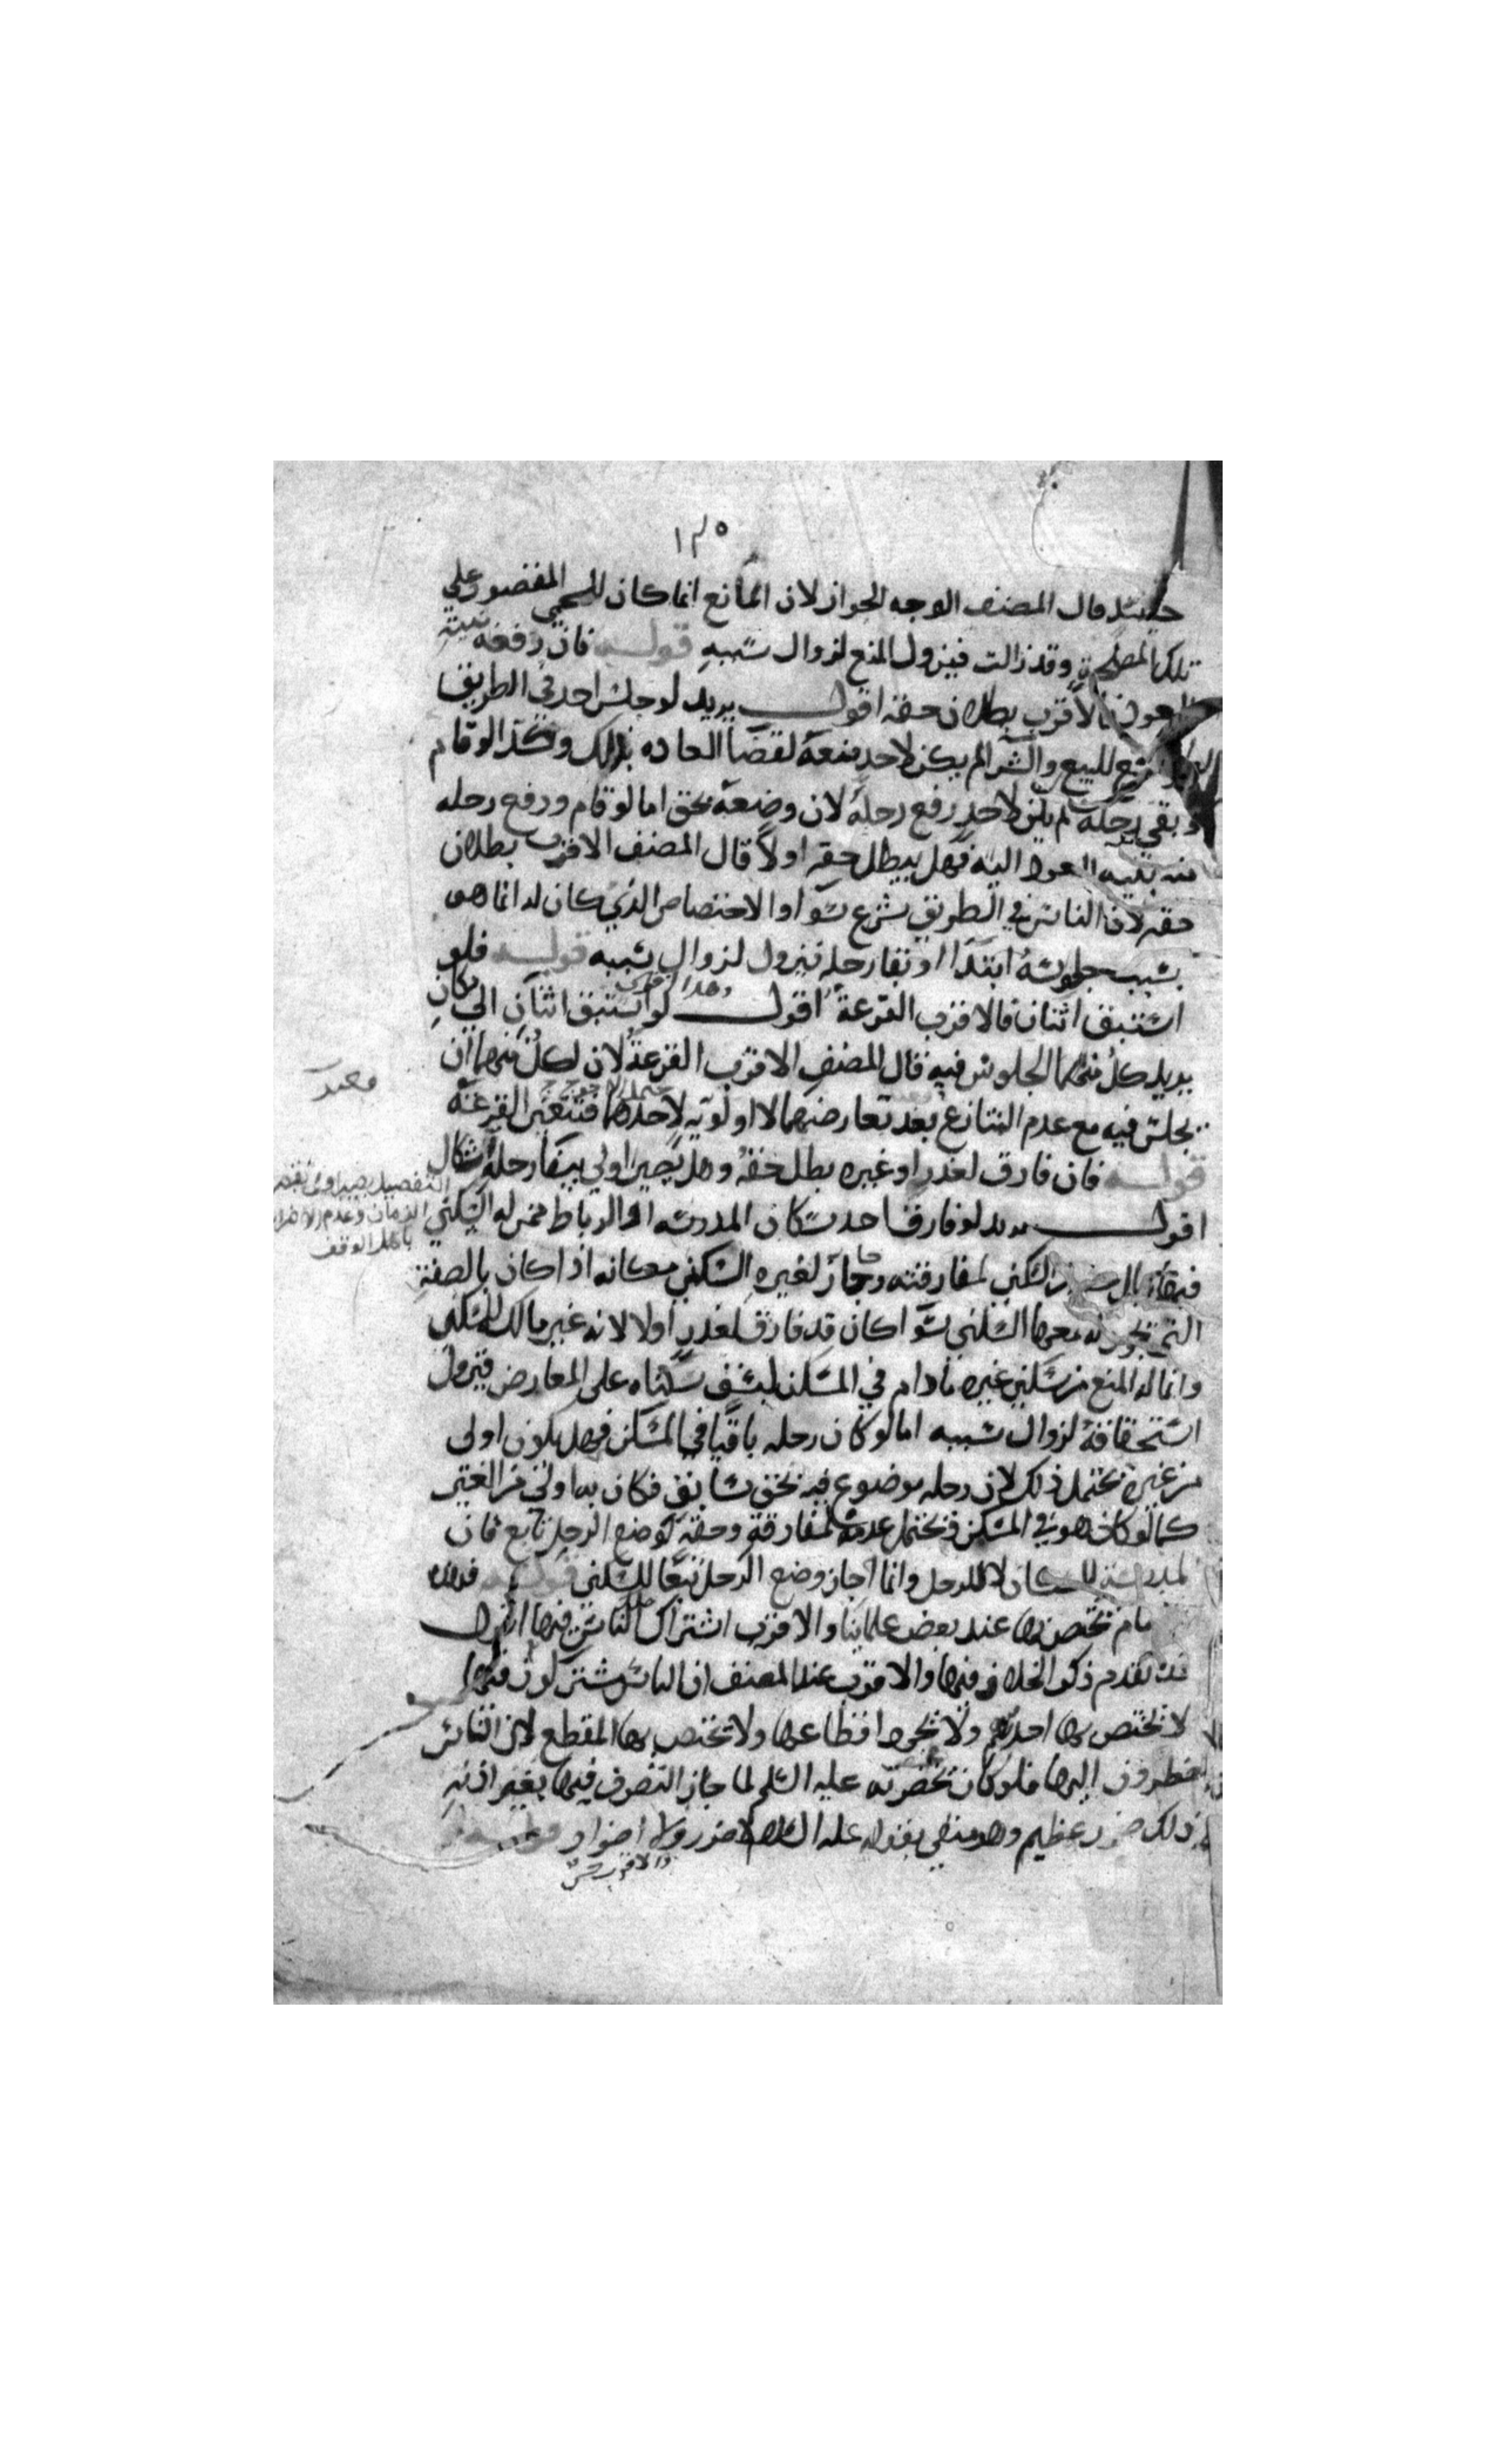 ١٣٥
حينئذ قال المصنف الاوجه الجواز لان المانع انما كان للحمى المقصور على
تلك المصلحة وقد زالت فيزول المنع لزوال سببه قوله فان رفعه بنية
العود فالاقرب بطلان حقه اقول يريد لو جلس احد في الطريق
للبيع والشرا لم يكن لاحد منعه لقضا العاده بذلك وكذا لو قام
وبقي رحله لم يكن لاحد رفع رحله لان وضعه بحق اما لو قام ورفع رحله
منه بنيه العود اليه فهل يبطل حقه اولا قال المصنف الاقرب بطلان
حقه لان الناس في الطريق شرع سوا والاختصاص الذي كان له انما هو
بسبب جلوسه ابتدا او بقا رحله فيزول لزوال سببه قوله فلو
استبق اثنان فالاقرب القرعة اقول لو استبق اثنان الى مكان
يريد كل منهما الجلوس فيه قال المصنف الاقرب القرعة لان لكل منهما ان
يجلس فيه مع عدم التنازع بعد تعارضهما لا اولويه لاحدهما فتتعين القرعة
قوله فان فارق لعذر او غيره بطل حقه وهل يصير اولى ببقا رحله اشكال
التفصيل
الزمان وعدم الاضرار
باهل الوقف
اقول يريد لو فارق احد سكان المدرسه او الرباط ممن له السكنى
فيها السكنى لمفارقته وجاز لغيره السكنى مكانه اذا كان بالصفة
التي يجوز له معها السكنى سوا كان قد فارق لعذر اولا لانه غير مالك للسكنى
وانما له المنع من سكنى غيره مادام في المسكن لسبق سكناه على المعارض فيزول
استحقاقه لزوال سببه اما لو كان رحله باقيا في المسكن فهل يكون اولى
من غيره يحتمل ذلك لان رحله موضوع فيه بحق سابق فكان به اولى من الغير
كما لو كان هو في المسكن ويحتمل عدمه لمفارقة وحقه لوضع الرحل تابع فان
المدرسة للسكان لا للرحل وانما اجاز وضع الرحل تبعا للسكنى قوله فهذه
تختص بها عند بعض علمائنا والاقرب اشتراك الناس فيها اقول
قد تقدم ذكر الخلاف فيها والاقرب عند المصنف ان الناس مشتركون فيها
لا تختص بها احدهم ولا يجوز اقطاعها ولا تختص بها المقطع لان الناس
يضطرون اليها فلو كانت مختصه به عليه السلم لما جاز التصرف فيها بغير اذنه
ذلك ضرر عظيم وهو منفي بقوله عليه السلام لا ضرر ولا اضرار قوله
والاقرب